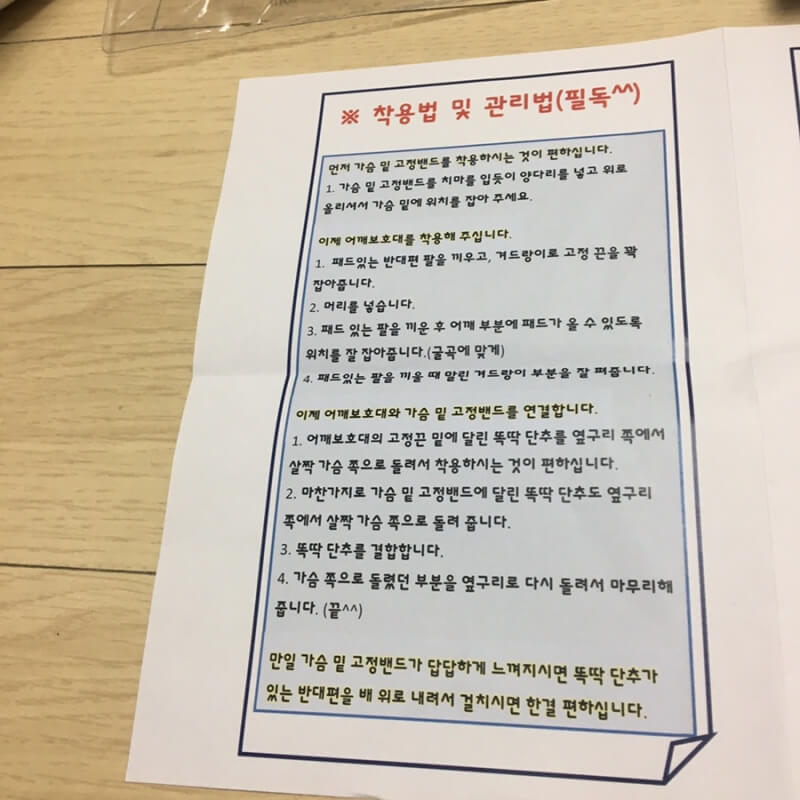 ※ 착용법 및 관리법(필독^^)
먼저 가슴 밑 고정밴드를 착용하시는 것이 편하십니다.
1. 가슴 밑 고정밴드를 치마를 입듯이 양다리를 넣고 위로
올리셔서 가슴 밑에 위치를 잡아 주세요.
이제 어깨보호대를 착용해 주십니다.
1. 패드있는 반대편 팔을 끼우고, 겨드랑이로 고정 끈을 꽉
잡아줍니다.
2. 머리를 넣습니다.
3. 패드 있는 팔을 끼운 후 어깨 부분에 패드가 올 수 있도록
위치를 잘 잡아줍니다.(굴곡에 맞게)
4. 패드있는 팔을 끼울 때 말린 겨드랑이 부분을 잘 펴줍니다.
이제 어깨보호대와 가슴 밑 고정밴드를 연결합니다.
1. 어깨보호대의 고정끈 밑에 달린 똑딱 단추를 옆구리 쪽에서
살짝 가슴 쪽으로 돌려서 착용하시는 것이 편하십니다.
2. 마찬가지로 가슴 밑 고정밴드에 달린 똑딱 단추도 옆구리
쪽에서 살짝 가슴 쪽으로 돌려 줍니다.
3. 똑딱 단추를 결합합니다.
4. 가슴 쪽으로 돌렸던 부분을 옆구리로 다시 돌려서 마무리해
줍니다. (끝^^)
만일 가슴 밑 고정밴드가 답답하게 느껴지시면 똑딱 단추가
있는 반대편을 배 위로 내려서 걸치시면 한결 편하십니다.